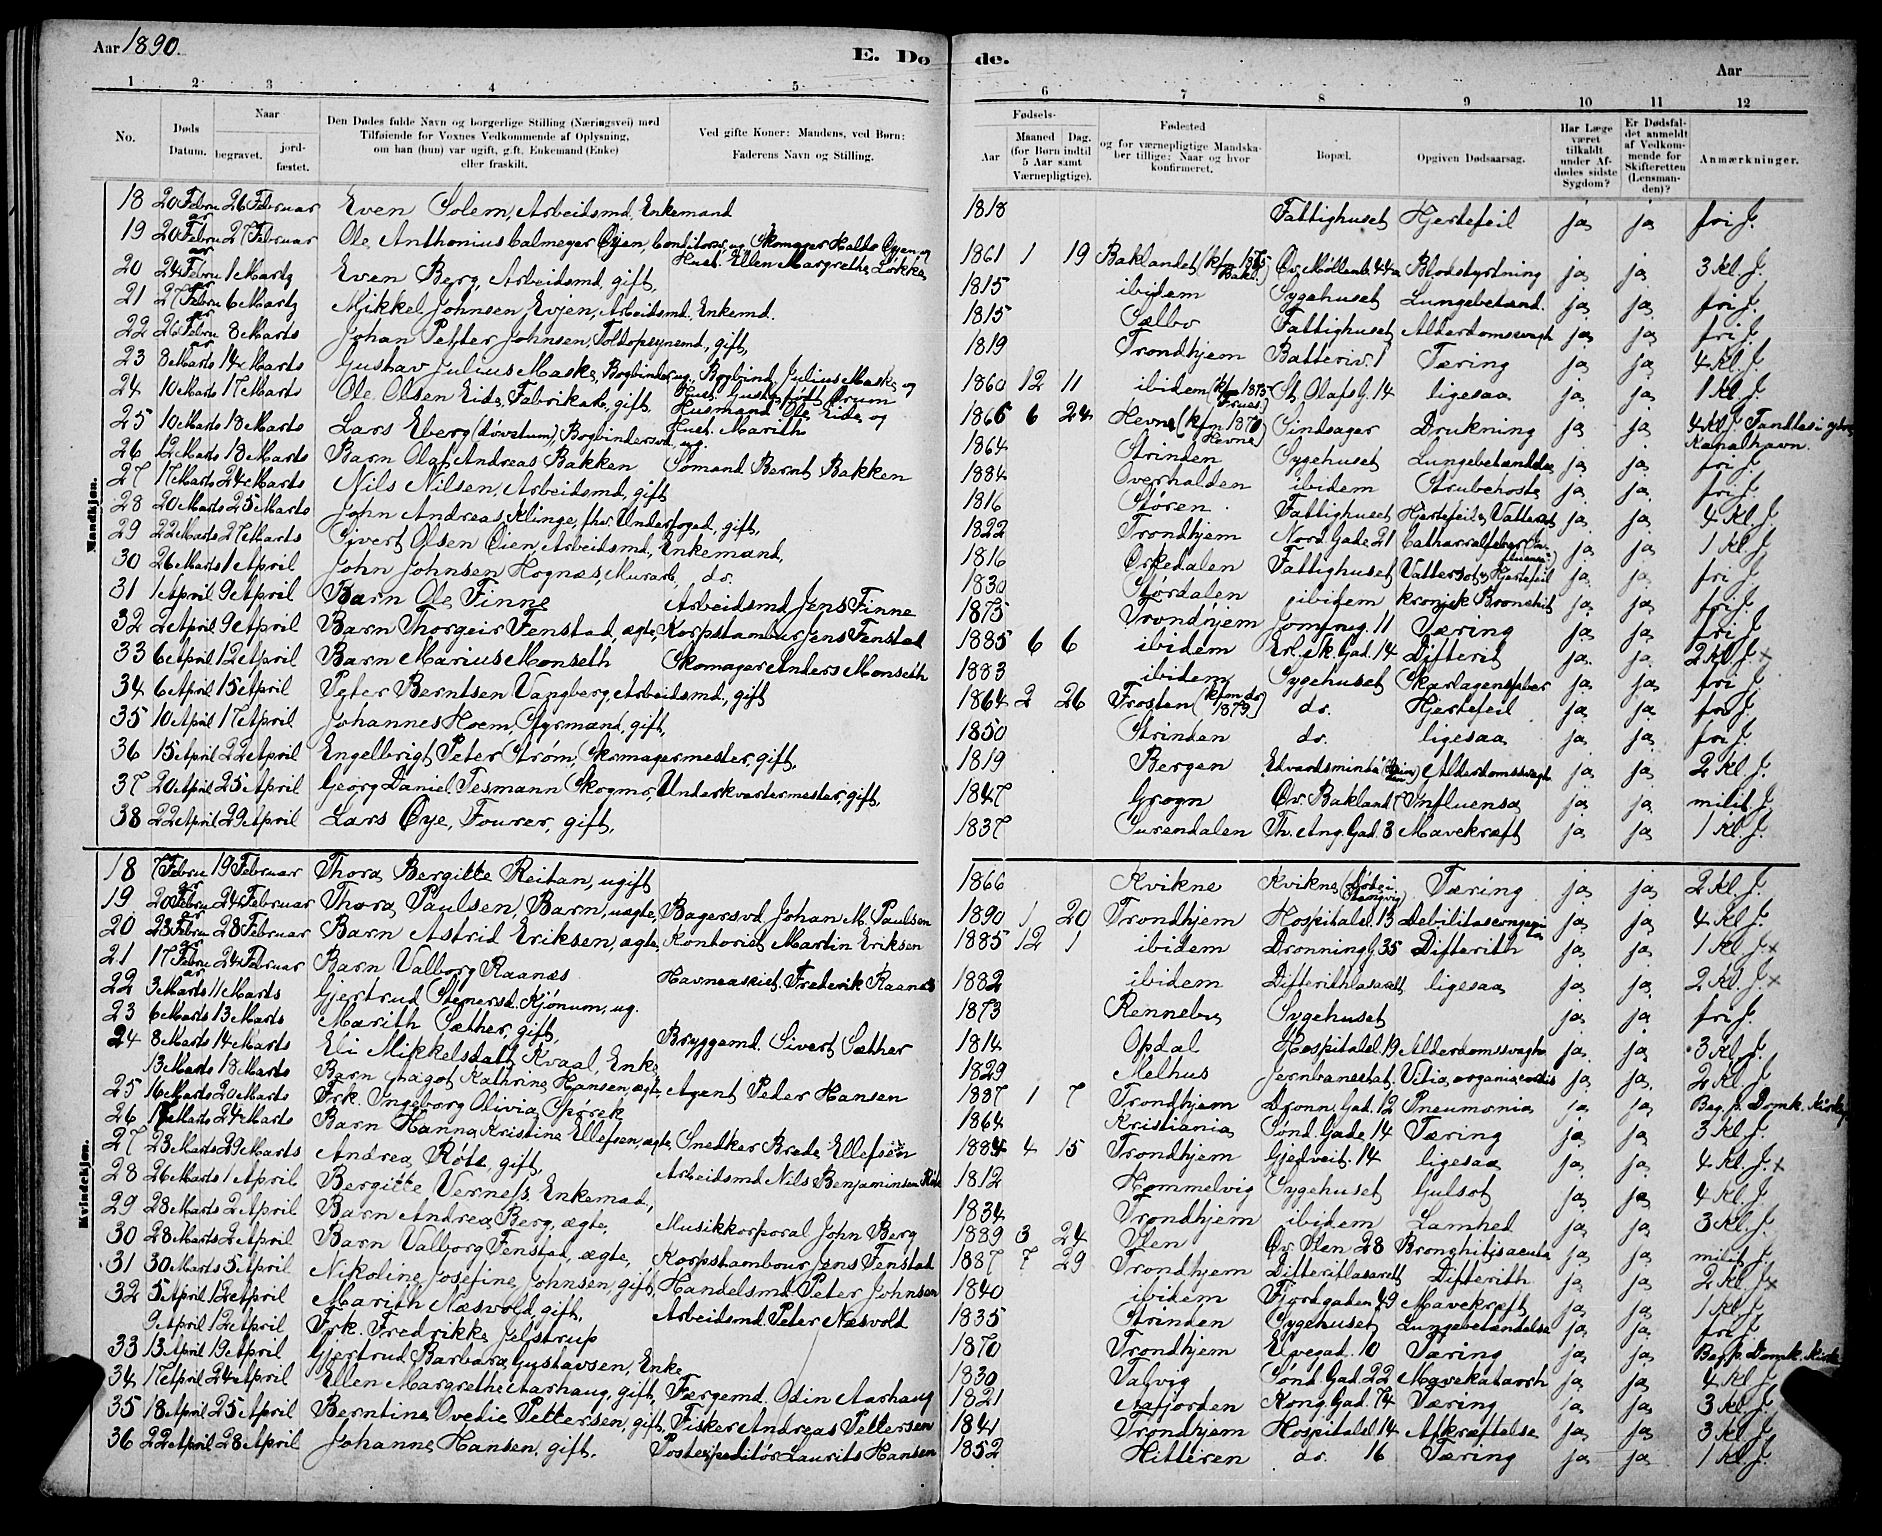 Aar 1890.
E. Dø
de.
Aar
1 2 3 4 5
6 7 8 9 10 11 12
No.
Døds Datum.
Naar
begravet.
jordfæstet.
Den Dødes fulde Navn og borgerlige Stilling (Næringsvei) med
Tilføiende for Voxnes Vedkommende af Oplysning,
om han (hun) var ugift, gift, Enkemand (Enke)
eller fraskilt.
Ved gifte Koner: Mandens, ved Børn:
Faderens Navn og Stilling.
Fødsels-
Aar
Maaned (for Børn indtil 5 Aar samt Værnepligtige).
Dag.
Fødested
og for værnepligtige Mandskaber tillige: Naar og hvor
konfirmeret.
Bopæl.
Opgiven Dødsaarsag.
Har Læge været tilkaldt under Afdødes sidste Sygdom?
Er Dødsfaldet anmeldt af Vedkommende for Skifteretten (Lensmanden)?
Anmærkninger.
Mandkjøn.
18 20 Februar 26 Februar Even Solem, Arbeidsmd, Enkemand 1818 Fattighuset Hjertefeil ja ja fri J.
19 20 Februar 27 Februar Ole Anthonius Calmeyer Øyen, Conditorsv, ug. Skomager Halto Øyen og Hust. Ellen Margrethe Løkke 1861 1 19 Baklandet (kfm 1875 Bakl.) Øv. Møllenb. 44a Blodstyrtning ja ja 3 Kl. J.
20 24 Februar 1 Marts Even Berg, Arbeidsmd, gift, 1815 ibidem Sygehuset Lungebetænd. ja ja fri J.
21 27 Febru 6 Marts Mikkel Johnsen Evjen, Arbeidsmd. Enkemd. 1815 Sælbo Fattighuset Alderdomssvagh ja ja fri J.
22 26 Februar 8 Marts Johan Petter Johnsen, Toldopsynsmd, gift, 1819 Trondhjem Batteriv. 1 Tæring ja ja 4 Kl. J.
23 8 Marts 14 Marts Gustav Julius Maske, Bogbinder, ug. Bogbind. Julius Maske og Hust. Gusta født Krum 1860 12 11 ibidem (kfm 1875 Frues.) St. Olafs G. 14 ligesaa ja ja 1 Kl. J.
24 10 Marts 17 Marts Ole Olsen Eide, Fabrikarb, gift, Husmand Ole Eide og Hust. Marith 1866 6 24 Hevne (kfm 1870 Hevne) Sindsager Drukning ja ja 4 Kl. J. Fandtes i Kanalhavn.
25 10 Marts 18 Marts Lars Eberg (døvstum), Bogbindersvd, ug. 1864 Strinden Sygehuset Lungebetændelse ja ja fri J.
26 12 Marts 18 Marts Barn Olaf Andreas Bakken Sømand Bernt Bakken 1884 Overhalden ibidem Strubehoste ja ja fri J.
27 17 Marts 24 Marts Nils Nilsen, Arbeidsmd, gift 1816 Støren Fattighuset Hjertefeil, Vattersot ja ja 4 Kl. J.
28 20 Marts 25 Marts John Andreas Klinge, fhv. Underfoged, gift, 1822 Trondhjem Nord. Gade 21 Catharralfeber ja ja 1 Kl. J.
29 22 Marts 27 Marts Sivert Olsen Øien, Arbeidsmd, Enkemand, 1816 Ørkedalen Fattighuset Vattersot, Hjertefeil ja ja fri J.
30 26 Marts 1 April John Johnsen Hognæs, Murarb, do. 1830 Størdalen ibidem kronisk Bronchit ja ja fri J.
31 1 April 9 April Barn Ole Finne Arbeidsmd Jens Finne 1875 Trondhjem Jomfrug. 11 Tæring ja ja fri J.
32 2 April 9 April Barn Thorgeir Fenstad, ægte, Korpstambur Jens Fenstad 1885 6 6 ibidem Erl. sk. Gad. 14 Difterit ja ja 2 Kl. J. x
33 6 April 12 April Barn Marius Monseth Skomager Anders Monseth 1883 ibidem Sygehuset Skarlagensfeber ja ja fri J.
34 6 April 15 April Peter Berntsen Vangberg, Arbeidsmd, gift 1864 2 26 Frosten (kfm do 1879) do. Hjertefeil ja ja fri J.
35 10 April 17 April Johannes Hoem, Styrmand, gift, 1850 Strinden do. ligesaa ja ja fri J.
36 15 April 22 April Engelbrigt Peter Strøm, Skomagermester, gift, 1819 Bergen Edvardsminde Alderdomssvagh ja ja 2 Kl. J.
37 20 April 25 April Georg Daniel Tesmann Skogmo, Underkvartermester, gift, 1847 Grogn Øv. Bakland 7 Influensa ja ja milit. J.
38 22 April 29 April Lars Øye, Fourer, gift, 1837 Surendalen Th. Ang. Gad. 3 Mavekræft ja ja 1 Kl. J.
Kvindekjøn.
18 7 Februar 19 Februar Thora Bergitte Reitan, ugift 1866 Kvikne Kvikne Tæring ja ja 2 Kl. J.
19 20 Februar 24 Februar Thora Paulsen, Barn, uægte, Bagersvd Johan M. Paulsen 1890 1 20 Trondhjem Hospitalsl. 13 Debilitas congenita ja ja 4 Kl. J.
20 23 Februar 28 Februar Barn Astrid Eriksen, ægte, Kontorist Martin Eriksen 1885 12 1 ibidem Dronning G. 35 Difterith ja ja 1 Kl. J. x
21 17 Februar 24 Februar Barn Valborg Raanæs Havneassist. Frederik Raanæs 1882 ibidem Difterithlasarett ligesaa ja ja 2 Kl. J. x
22 3 Marts 11 Marts Gjertrud Stenersd. Kjønum, ug. 1873 Rennebu Sygehuset ja ja fri J.
23 6 Marts 13 Marts Marith Sæther, gift, Bryggemd. Sivert Sæther 1814 Opdal Hospitalsl. 19 Alderdomssvagh ja ja 3 Kl. J.
24 8 Marts 14 Marts Eli Mikkelsdatt Kvaal, Enke 1829 Melhus Jernbanestat. Vitia organica cordis ja ja 2 Kl. J.
13 Marts 18 Marts Barn Magot Kathrine Hansen, ægte, Agent Peder Hansen 1887 1 7 Trondhjem Dronn. Gad. 12 Pneumonia ja ja Beg. p. Domk. Kirkeg
25 16 Marts 20 Marts Frk. Ingeborg Olivia Spørck 1864 Kristiania Sønd. Gade 14 Tæring ja ja 3 Kl. J.
26 17 Marts 24 Marts Barn Hanna Kristine Ellefsen, ægte, Snedker Brede Ellefsen 1884 4 15 Trondhjem Gjedveit. 14 ligesaa ja ja 4 Kl. J. x
27 23 Marts 29 Marts Andrea Röte, gift, Arbeidsmd Nils Benjaminsen Röte 1812 Hommelvig Sygehuset Gulsot ja ja 4 Kl. J.
28 26 Marts 1 April Bergitte Vernes, Enkemad, 1834 Trondhjem ibidem Lamhed ja ja 3 Kl. J.
29 28 Marts 2 April Barn Andrea Berg, ægte, Musikkorporal John Berg 1889 3 24 Ilen Øv. Ilen 28 Bronchitis acuta ja ja milit. J.
30 28 Marts 2 April Barn Valborg Fenstad, ægte, Korpstambour Jens Fenstad 1887 7 29 Trondhjem Difteritlasarett Difterith ja ja 2 Kl. J. x
31 30 Marts 5 April Nikoline Josefine Johnsen, gift, Handelsmd Peter Johnsen 1840 ibidem Fjordgaden 49 Mavekræft ja ja 1 Kl. J.
32 5 April 12 April Marith Næsvold, gift, Arbeidsmd. Peter Næsvold 1835 Strinden Sygehuset Lungebetændelse ja ja fri J.
9 April 12 April Frk. Fredrikke Jelstrup 1870 Trondhjem Elvegad. 10 Tæring ja ja Beg. p. Domk. Kirkeg
33 13 April 19 April Gjertrud Barbara Gustavsen, Enke 1830 Talvig Sønd. Gad. 22 Mavekatarrh ja ja 4 Kl. J.
34 17 April 24 April Ellen Margrethe Aarhaug, gift, Færgemd. Odin Aarhaug 1821 Aafjorden Kong. Gad. 74 Tæring ja ja 3 Kl. J.
35 18 April 25 April Berntine Ovedie Pettersen, gift, Fisker Andreas Pettersen 1841 Trondhjem Hospitalsl. 14 Afkræftelse ja ja 3 Kl. J.
36 22 April 28 April Johanne Hansen, gift. Postexpeditör Laurits Hansen 1852 Hitteren do. 16 Tæring ja ja 1 Kl. J.